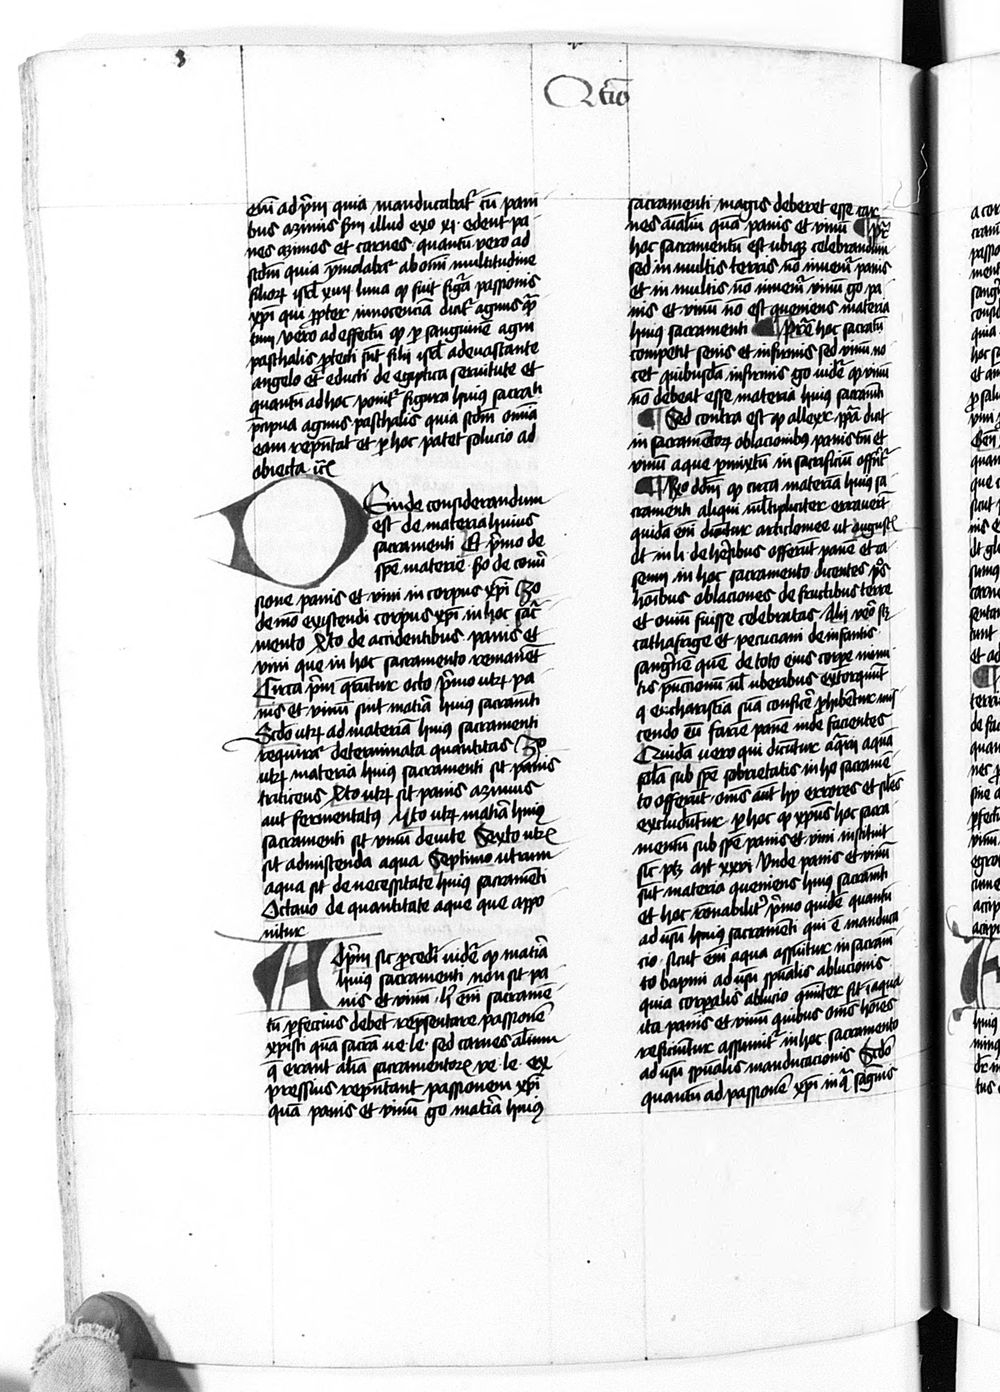 Q̄tio
em̄ ad p̄m quia manducabat᷑ cū pani
bus azimis sm̄ illud exo xi· edent pa
nes azimos et carnes· quantū vero ad
scdm quia ȳmolabat᷑ ab om̄i multitudine
filior᷑ isrl̄ xiiij luna qd̄ fuit figᷓa passionis
xp̄i qui ꝓpter innocenciā dicit᷑ agnus qᷓ
tum vero ad effectū qꝫ ꝑ sanguinē agni
paschalis ꝓtecti sūt filij isrl̄ a devastante
angelo et educti de egiptica servitute et
quantū ad hoc ponit᷑ figura huius sacra
p̄cipua agnus paschalis quia scdm omia
eam rep̄ntat et ꝑ hoc patet solucio ad
obiecta
Deinde considerandum
est de materia huius
sacramenti Et p̄mo de
spē materie· sdo de conv̄
sione panis et vini in corpus xp̄i 3o
de mō existendi corpus xp̄i in hoc sac̄
mento 4to de accidentibus panis et
vini que in hoc sacramento remanēt
Circa p̄m q̄rūtur octo p̄mo utꝝ pa
nis et vinū sint matīa huius sacramēti
Scdo utꝝ ad materiam huius sacramenti
requirat᷑ determinata quantitas 3o
utꝝ materia huius sacramenti sit panis
triticeus 4to utꝝ sit panis azimus
aut fermentatꝰ Vto utꝝ matīa huiꝰ
sacramenti sit vinū de vite Sexto utꝝ
sit admiscenda aqua Septimo utrum
aqua sit de necessitate huius sacramēti
Octavo de quantitate aque que appo
nitur
Ad p̄m sic ꝓcedit᷑ videt᷑ qꝫ matīa
huius sacramenti non sit pa
nis et vinū hᷓ em̄ sacramē
tū ꝑfeccius debet rep̄sentare passionē
xpisti quā sacr̄a ve· le· sed carnes aīalium
q̄ erant matīa sacramentoꝝ ve· le· ex
pressius rep̄ntant passionem xp̄i
quā panis et vinū gͦ matīa huiꝰ
sacramenti magis deberet esse car
nes aīaliū quā panis et vinū ¶ Pt̄
hoc sacramentū est ubiqꝫ celebrandum
sed in multis terris nō invenit᷑ panis
et in multis nō invenit᷑ vinū gͦ pa
nis et vinū nō est ꝯveniens materia
huius sacramenti ¶ Pt̄ea hoc sacratū
competit sanis et infirmis sed vinū no
cet quibusdā infirmis gͦ videt᷑ qꝫ vinū
nō debeat esse materia huius sacramēti
¶ Sed contra est qd̄ allexr̄ pp̄a dicit
in sacramētoꝝ oblacionibꝰ panis tm̄ et
vinū aque ꝑmixtū in sacrificiū offerāt᷑
¶ Rͦo dd̄m qꝫ circa materiā huius sa
cramenti aliqui ml̄tipliciter erraverūt
quidā em̄ dicūtur articlomee ut augustꝰ
dt in li· de hēribus offerūt panē et ca
seum in hoc sacramento dicentes p̄os
hoībus oblaciones de fructibus terre
et ovium fuisse celebratas Alij vero sꝫ
cathafrige et pecuciani de infantis
sangīne quē de toto eius corpe minu
tis p̄unccionū ul̄ vberibus extorquūt
q̄ eucharistia suā confic̄e ꝓhibēntur mi
cendo eū farie panē inde facientes
Quidā vero qui dicūtur aq̄rii aquā
solā sub spē sobrietatis in ho sacramē
to offerūt· om̄s aut̄ hij errores et siles
excludūtur ꝑ hoc qꝫ xpūs hoc sacra
mentū sub spē panis et vini instituit
sic ptꝫ mt̄ xxvi Vnde panis et vinū
sūt materia ꝯveniens huiꝰ sacramēti
et hoc rōnabilit᷑ p̄mo quidē quantū
ad usū huius sacramēti qui ē manduca
cio· sicut em̄ aqua assumitur in sacram̄
to bapmi ad usū spūalis ablucionis
quia corpalis ablucio cōmiter fit ī aqua
ita panis et vinū quibus om̄s hoīes
reficiūtur assumit᷑ in hoc sacramento
ad usū spūalis manducacionis Scdo
quantū ad passionē xp̄i in q̄ sāguis